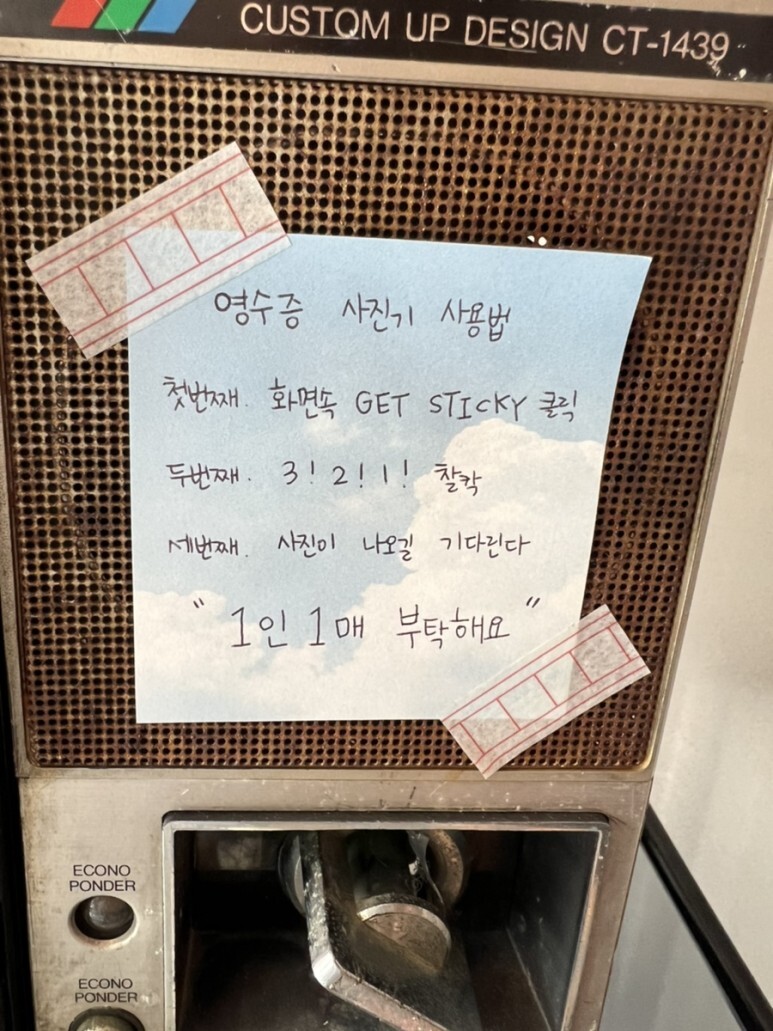 CUSTOM UP DESIGN CT-1439
영수증 사진기 사용법
첫번째. 화면속 GET STICKY 클릭
두번째. 3! 2! 1! 찰칵
세번째. 사진이 나오길 기다린다
"1인 1매 부탁해요"
ECONO
PONDER
ECONO
PONDER